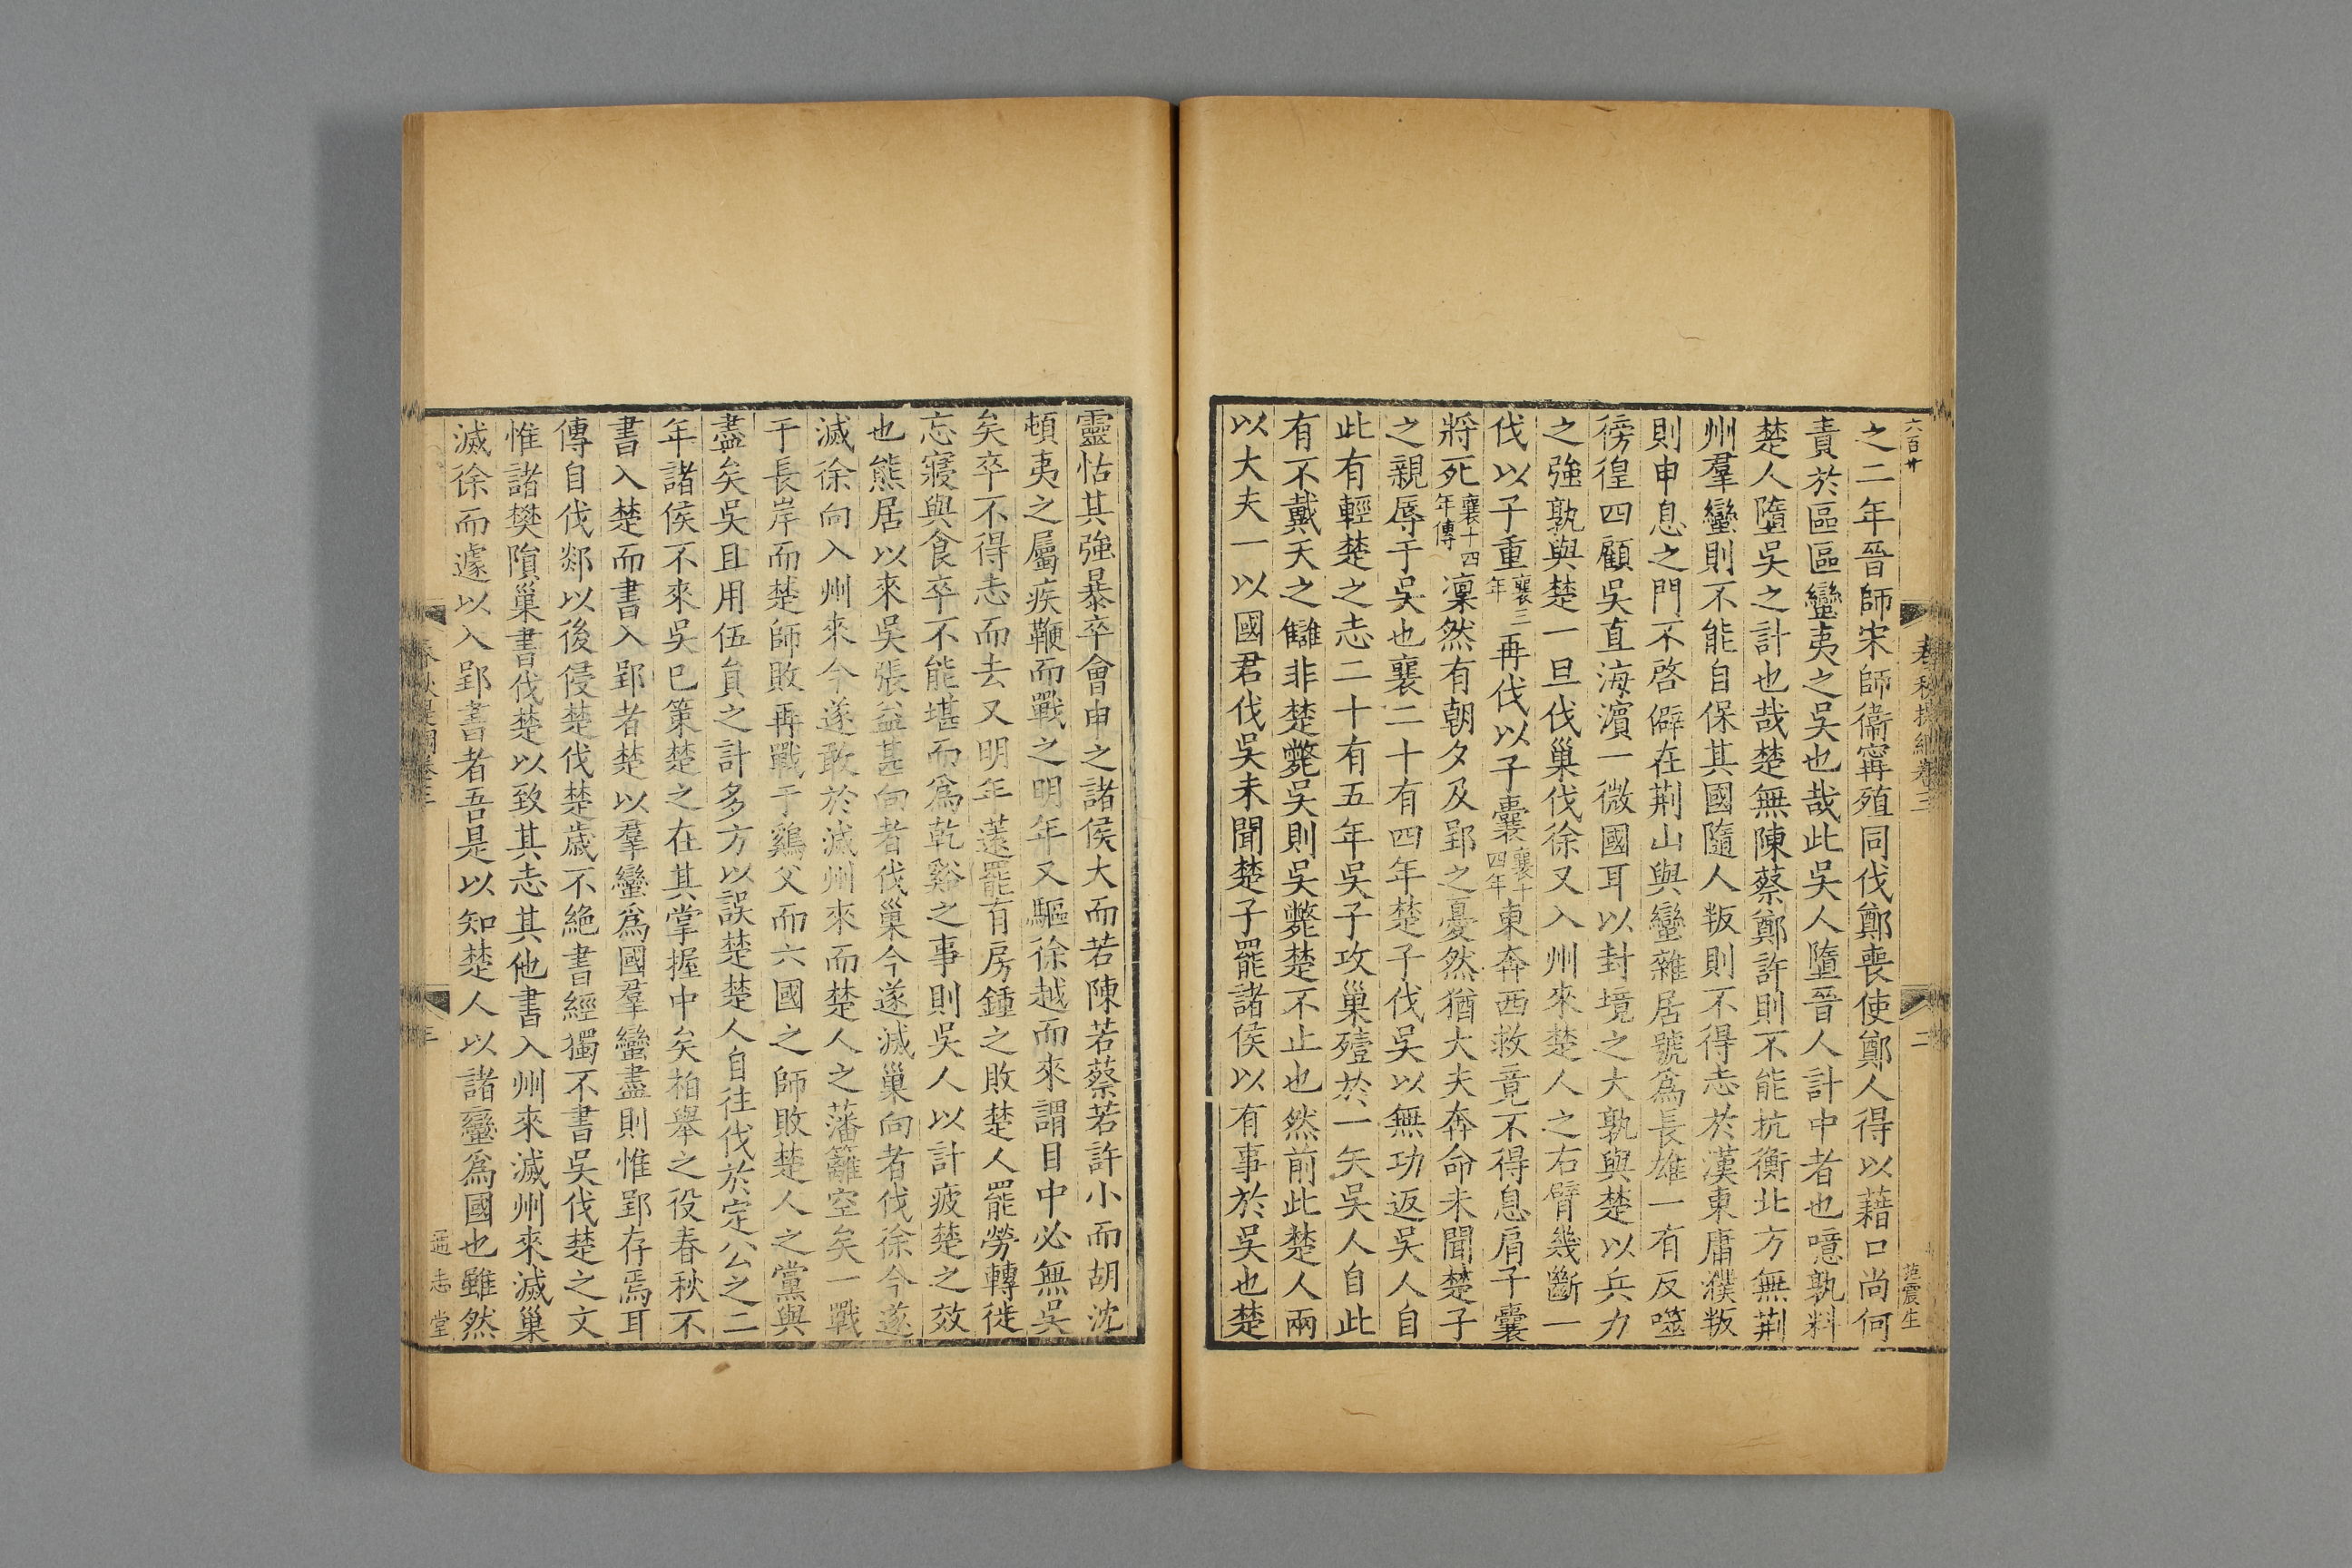 六百廿
春秋提綱卷三
二
范震生
之二年晉師宋師衞甯殖同伐鄭喪使鄭人得以藉口尚何
責於區區蠻夷之吳也哉此吳人墮晉人計中者也噫孰料
楚人墮吳之計也哉楚無陳蔡鄭許則不能抗衡北方無荆
州羣蠻則不能自保其國隨人叛則不得志於漢東庸濮叛
則申息之門不啓僻在荆山與蠻雜居號爲長雄一有反噬
徬徨四顧吳直海濵一微國耳以封境之大孰與楚以兵力
之強孰與楚一旦伐巢伐徐又入州來楚人之右臂幾斷一
伐以子重襄三年再伐以子囊襄十四年東奔西救竟不得息肩子囊
將死襄十四年傳凜然有朝夕及郢之憂然猶大夫奔命未聞楚子
之親辱于吳也襄二十有四年楚子伐吳以無功返吳人自
此有輕楚之志二十有五年吳子攻巢殪於一矢吳人自此
有不戴天之讎非楚斃吳則吳斃楚不止也然前此楚人兩
以大夫一以國君伐吳未聞楚子罷諸侯以有事於吳也楚
靈怙其強暴卒會申之諸侯大而若陳若蔡若許小而胡沈
頓夷之屬疾鞭而戰之明年又驅徐越而來謂目中必無吳
矣卒不得志而去又明年薳罷有房鍾之敗楚人罷勞轉徙
忘寢與食卒不能堪而爲乾谿之事則吳人以計疲楚之效
也熊居以來吳張益甚向者伐巢今遂滅巢向者伐徐今遂
滅徐向入州來今遂敢於滅州來而楚人之藩籬空矣一戰
于長岸而楚師敗再戰于鷄父而六國之師敗楚人之黨與
盡矣吳且用伍員之計多方以誤楚楚人自往伐於定公之二
年諸侯不來吳已策楚之在其掌握中矣柏舉之役春秋不
書入楚而書入郢者楚以羣蠻爲國羣蠻盡則惟郢存焉耳
傳自伐郯以後侵楚伐楚歲不絶書經獨不書吳伐楚之文
惟諸樊隕巢書伐楚以致其志其他書入州來滅州來滅巢
滅徐而遽以入郢書者吾是以知楚人以諸蠻爲國也雖然
春秋提綱卷三
三
通志堂